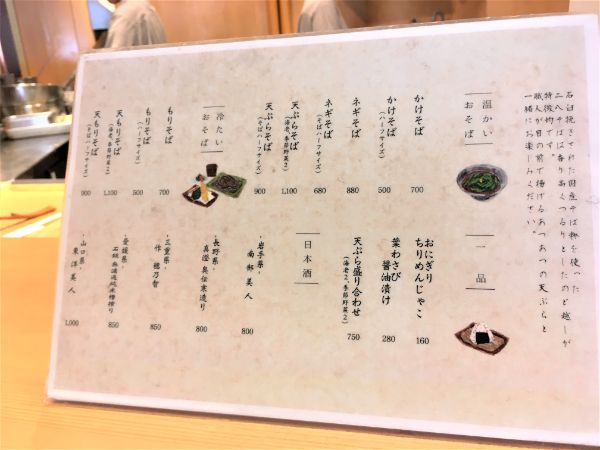 石臼挽きされた国産そば粉を使った
二八そばは香り高くつるりとしたのど越しが
特徴的です。
職人が目の前で揚げるあつあつの天ぷらと
一緒にお楽しみください。
温かい
おそば
かけそば
700
かけそば
(ハーフサイズ)
500
ネギそば
880
ネギそば
(そばハーフサイズ)
680
天ぷらそば
(海老2、季節野菜2)
1,100
天ぷらそば
(そばハーフサイズ)
900
冷たい
おそば
もりそば
700
もりそば
(ハーフサイズ)
500
天もりそば
(海老2、季節野菜2)
1,100
天もりそば
(そばハーフサイズ)
900
一品
おにぎり
ちりめんじゃこ
160
菜わさび
醤油漬け
280
天ぷら盛り合わせ
(海老2、季節野菜2)
750
日本酒
・岩手県・
南部美人
800
・長野県・
真澄 奥伝寒造り
800
・三重県・
作 穂乃智
850
・愛媛県・
石鎚 無濾過純米槽搾り
850
・山口県・
東洋美人
1,000